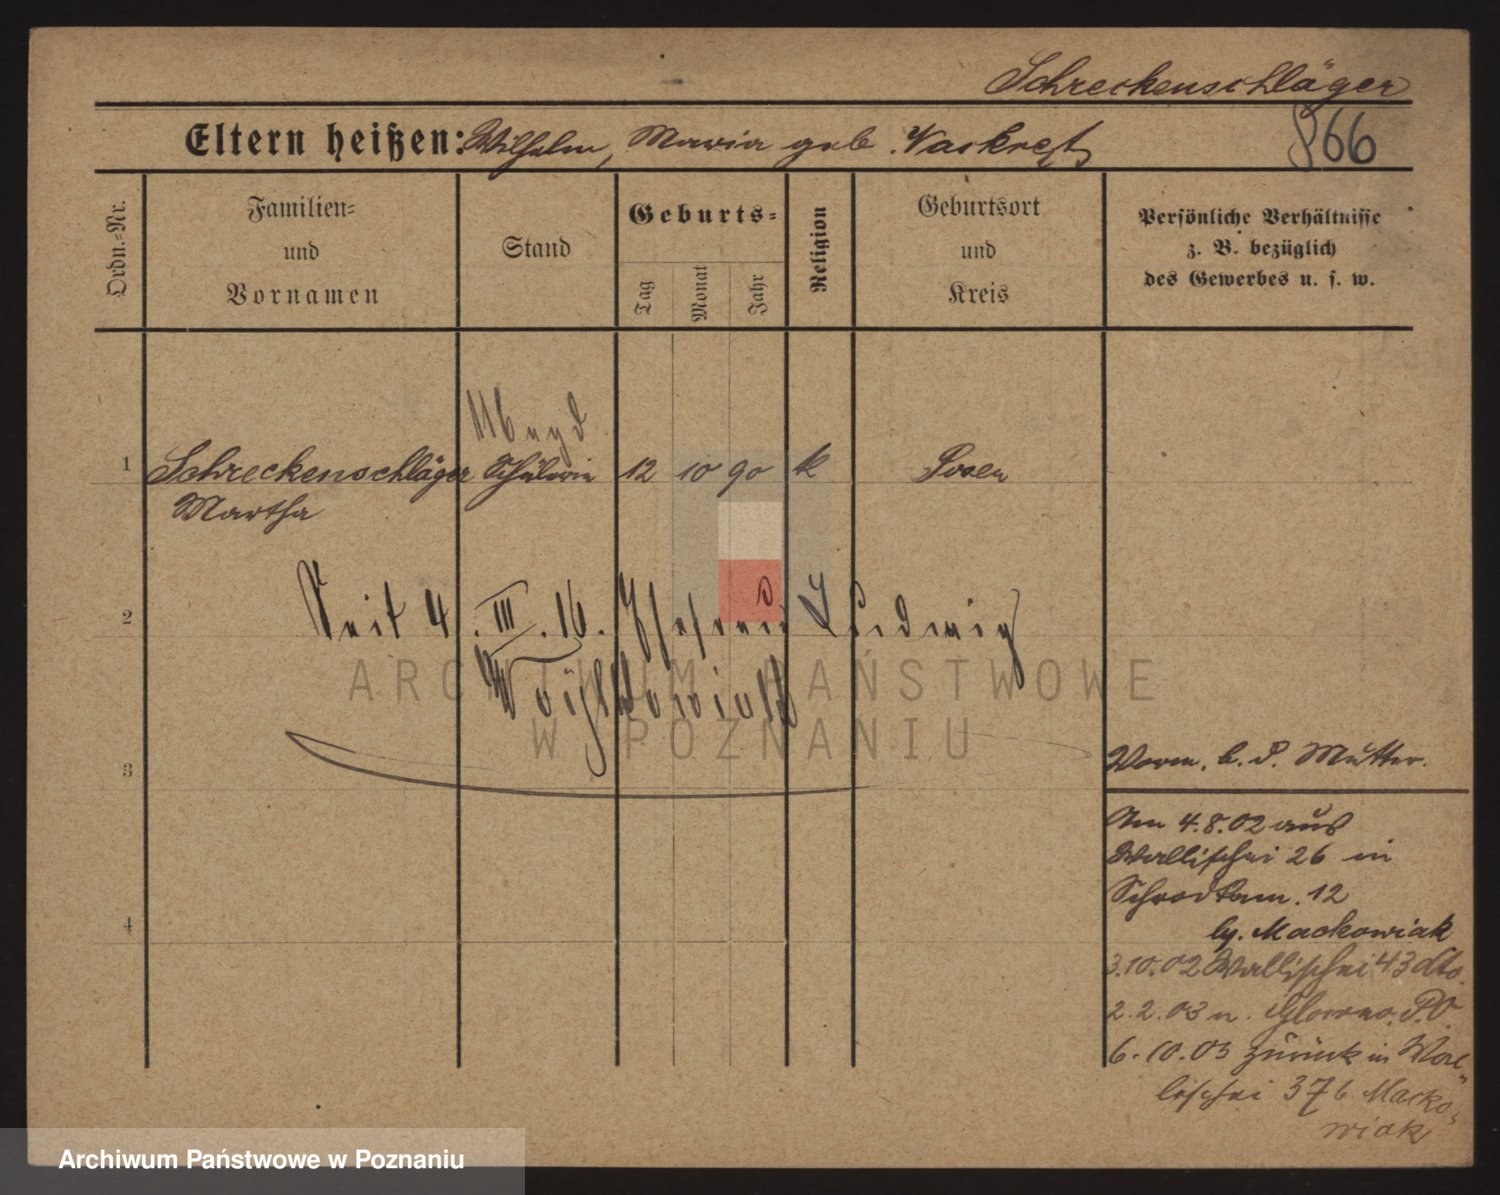 Schreckenschläger
Eltern heißen: Wilhelm, Maria geb.
866
Ordn.-Nr.
Familien-
und
Vornamen
Stand
Geburts-
Tag
Monat
Jahr
Religion
Geburtsort
und
Kreis
Persönliche Verhältnisse
z. B. bezüglich
des Gewerbes u. s. w.
Magd
1 Schreckenschläger Schülerin 12 10 90 k Posen
Martha
2
Seit 4. III. 16. Ludwig
3
4
Vorm. b. d. Mutter.
Am 4.8.02 aus
Wallischei 26 in
12
Mackowiak
3.10.02 Wallischei 43 dto.
2.2.03 n. Glowno, P.O.
6.10.03 zurück in Wal-
lischei 37b Macko-
wiak
ARCHIWUM PAŃSTWOWE
W POZNANIU
Archiwum Państwowe w Poznaniu